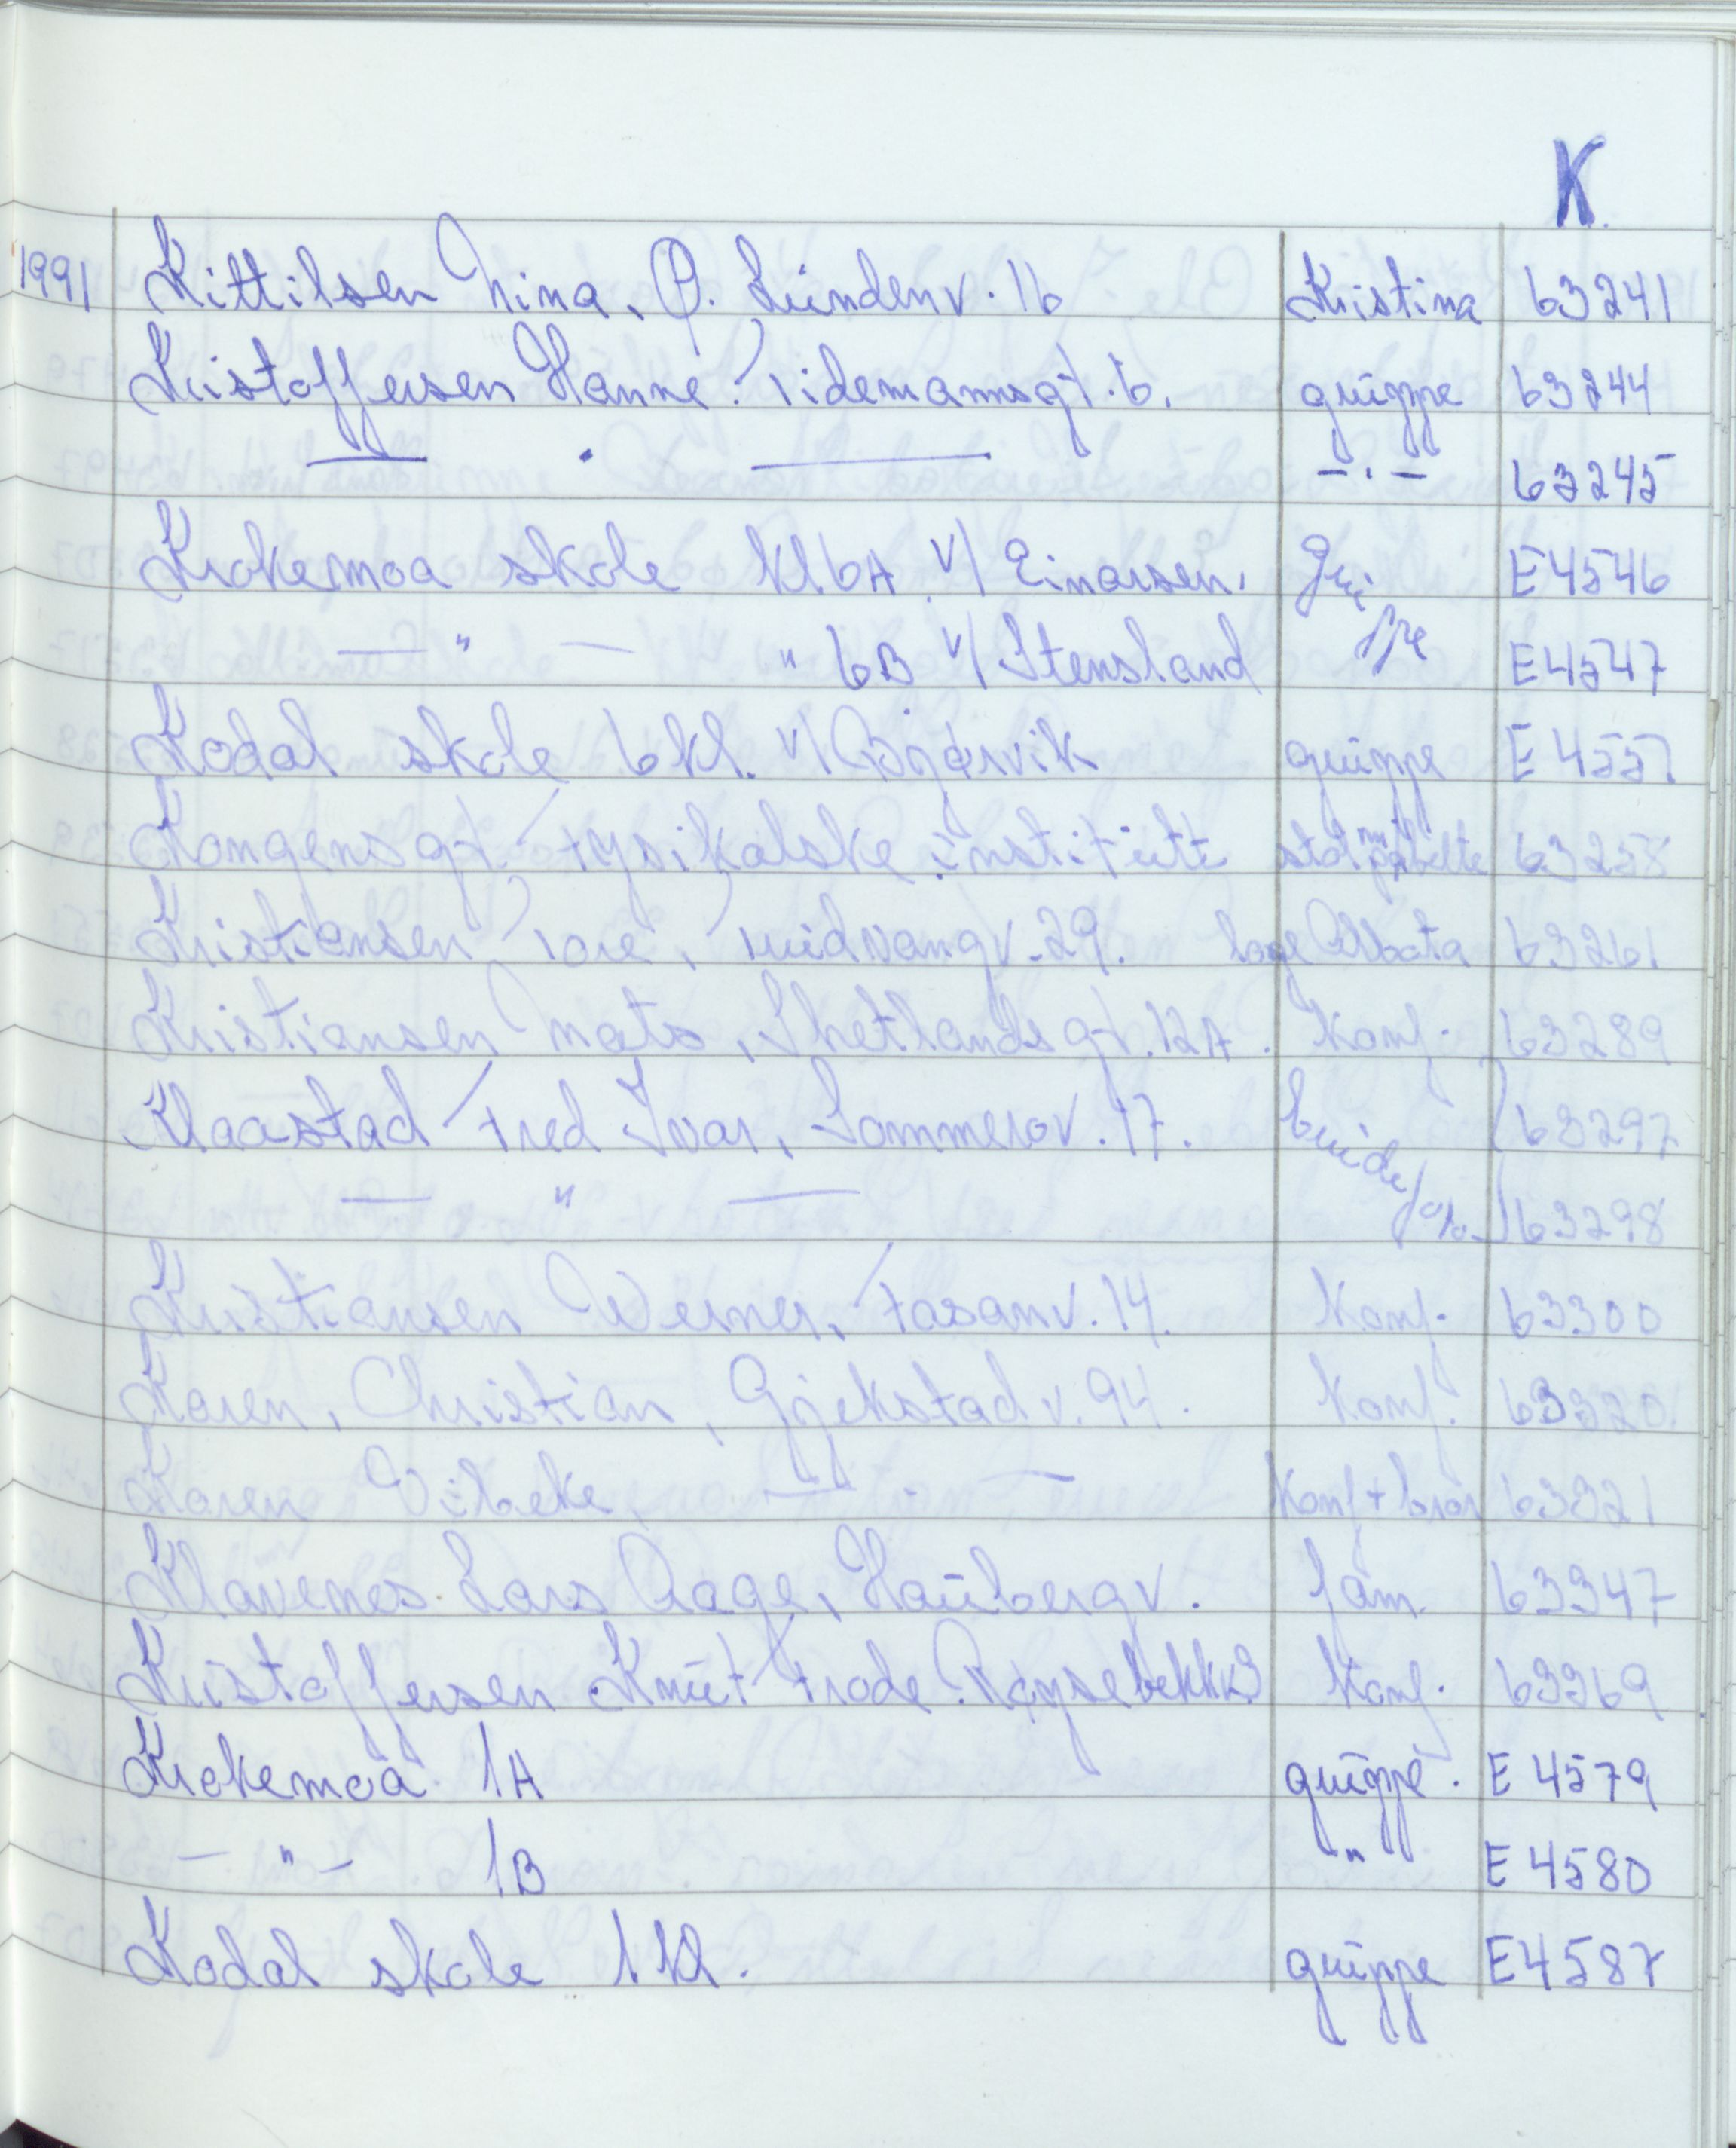 K.
1991 Kittilsen Nina, P. Lündenv. 16 Kristina 63241
Kristoffersen Hanne. Tidemannsgt. 6. grüppe 63244
— . — -.- 63245
Krokemoa skole kl 6A v/ Einarsen. Grüppe E4546
— " — " 6B v/ Stensland E4547
Kodal skole 6 kl. v/ Bjørvik grüppe E4557
Kongensgt. Fysikalske institütt 63258
Kristiansen Tore, v. 29. 63261
Kristiansen Mats, Shetlandsgt. 12A. Konf. 63289
Klaastad Fred Ivar, Sommerov. 17. brüdef 63297
— " — 63298
Kristiansen Werner, Fasanv. 14. Konf. 63300
Karen, Christian, Gjekstadv. 94. Konf. 63320
Karen Vibeke, — . — Konf + bror 63321
Klavenes Lars Aage, Haübergv. fam. 63347
Kristoffersen Knüt Frode. Konf. 63369
Krokemoa 1A grüppe. E 4579
- " - 1B " E 4580
Kodal skole 1 kl. grüppe E4587